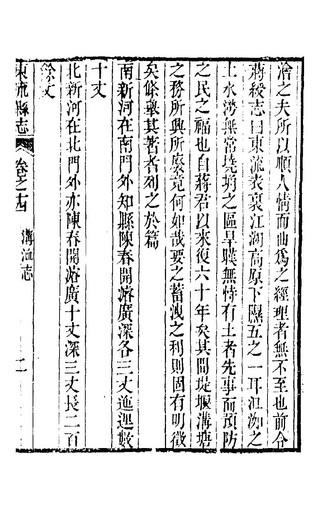 澮之夫所以順人情而曲爲之經理者無不至也前令
蔣綬志曰東流表裏江湖高原下隰五之一耳江洳之
土水潦無常墝埆之區旱暵無恃有土者先事而預防
之民之福也自蔣君以來復六十年矣其間堤堰溝塘
之務所興所廢竟何如哉要之蓄洩之利則固有明徵
矣條舉其著者列之於篇
南新河在南門外知縣陳春開濬廣深各三丈迤運數
十丈
北新河在北門外亦陳春開濬廣十丈深三丈長二百
餘丈
東流縣志 卷之十四 溝洫志